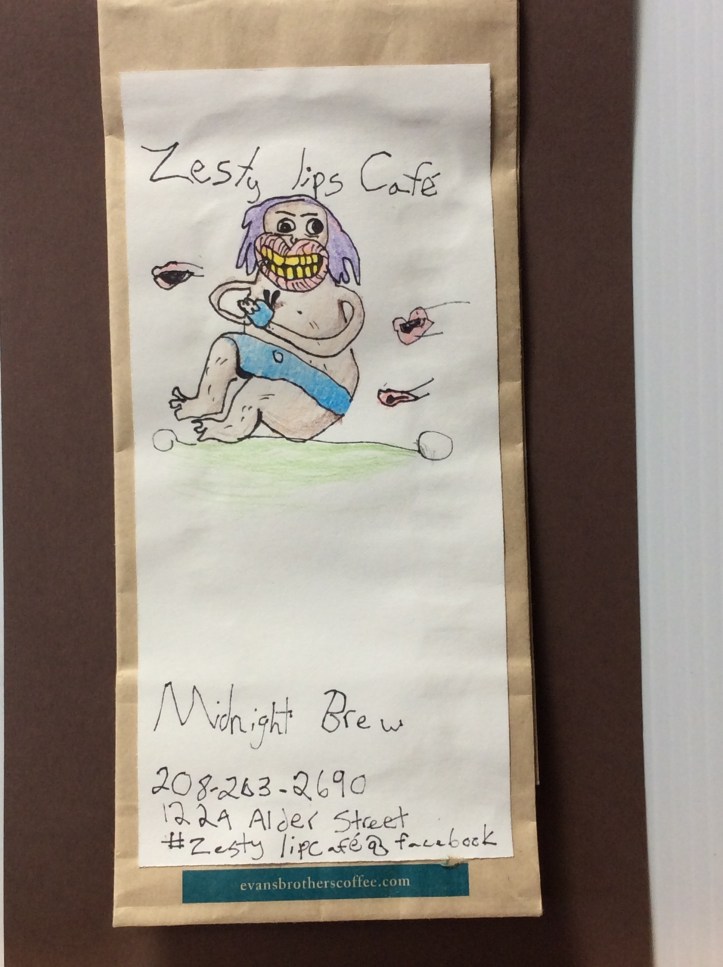 Zesty lips Café
Midnight Brew
208-263-2690
1224 Alder Street
#Zesty lipcafé@ facebook
evansbrotherscoffee.com